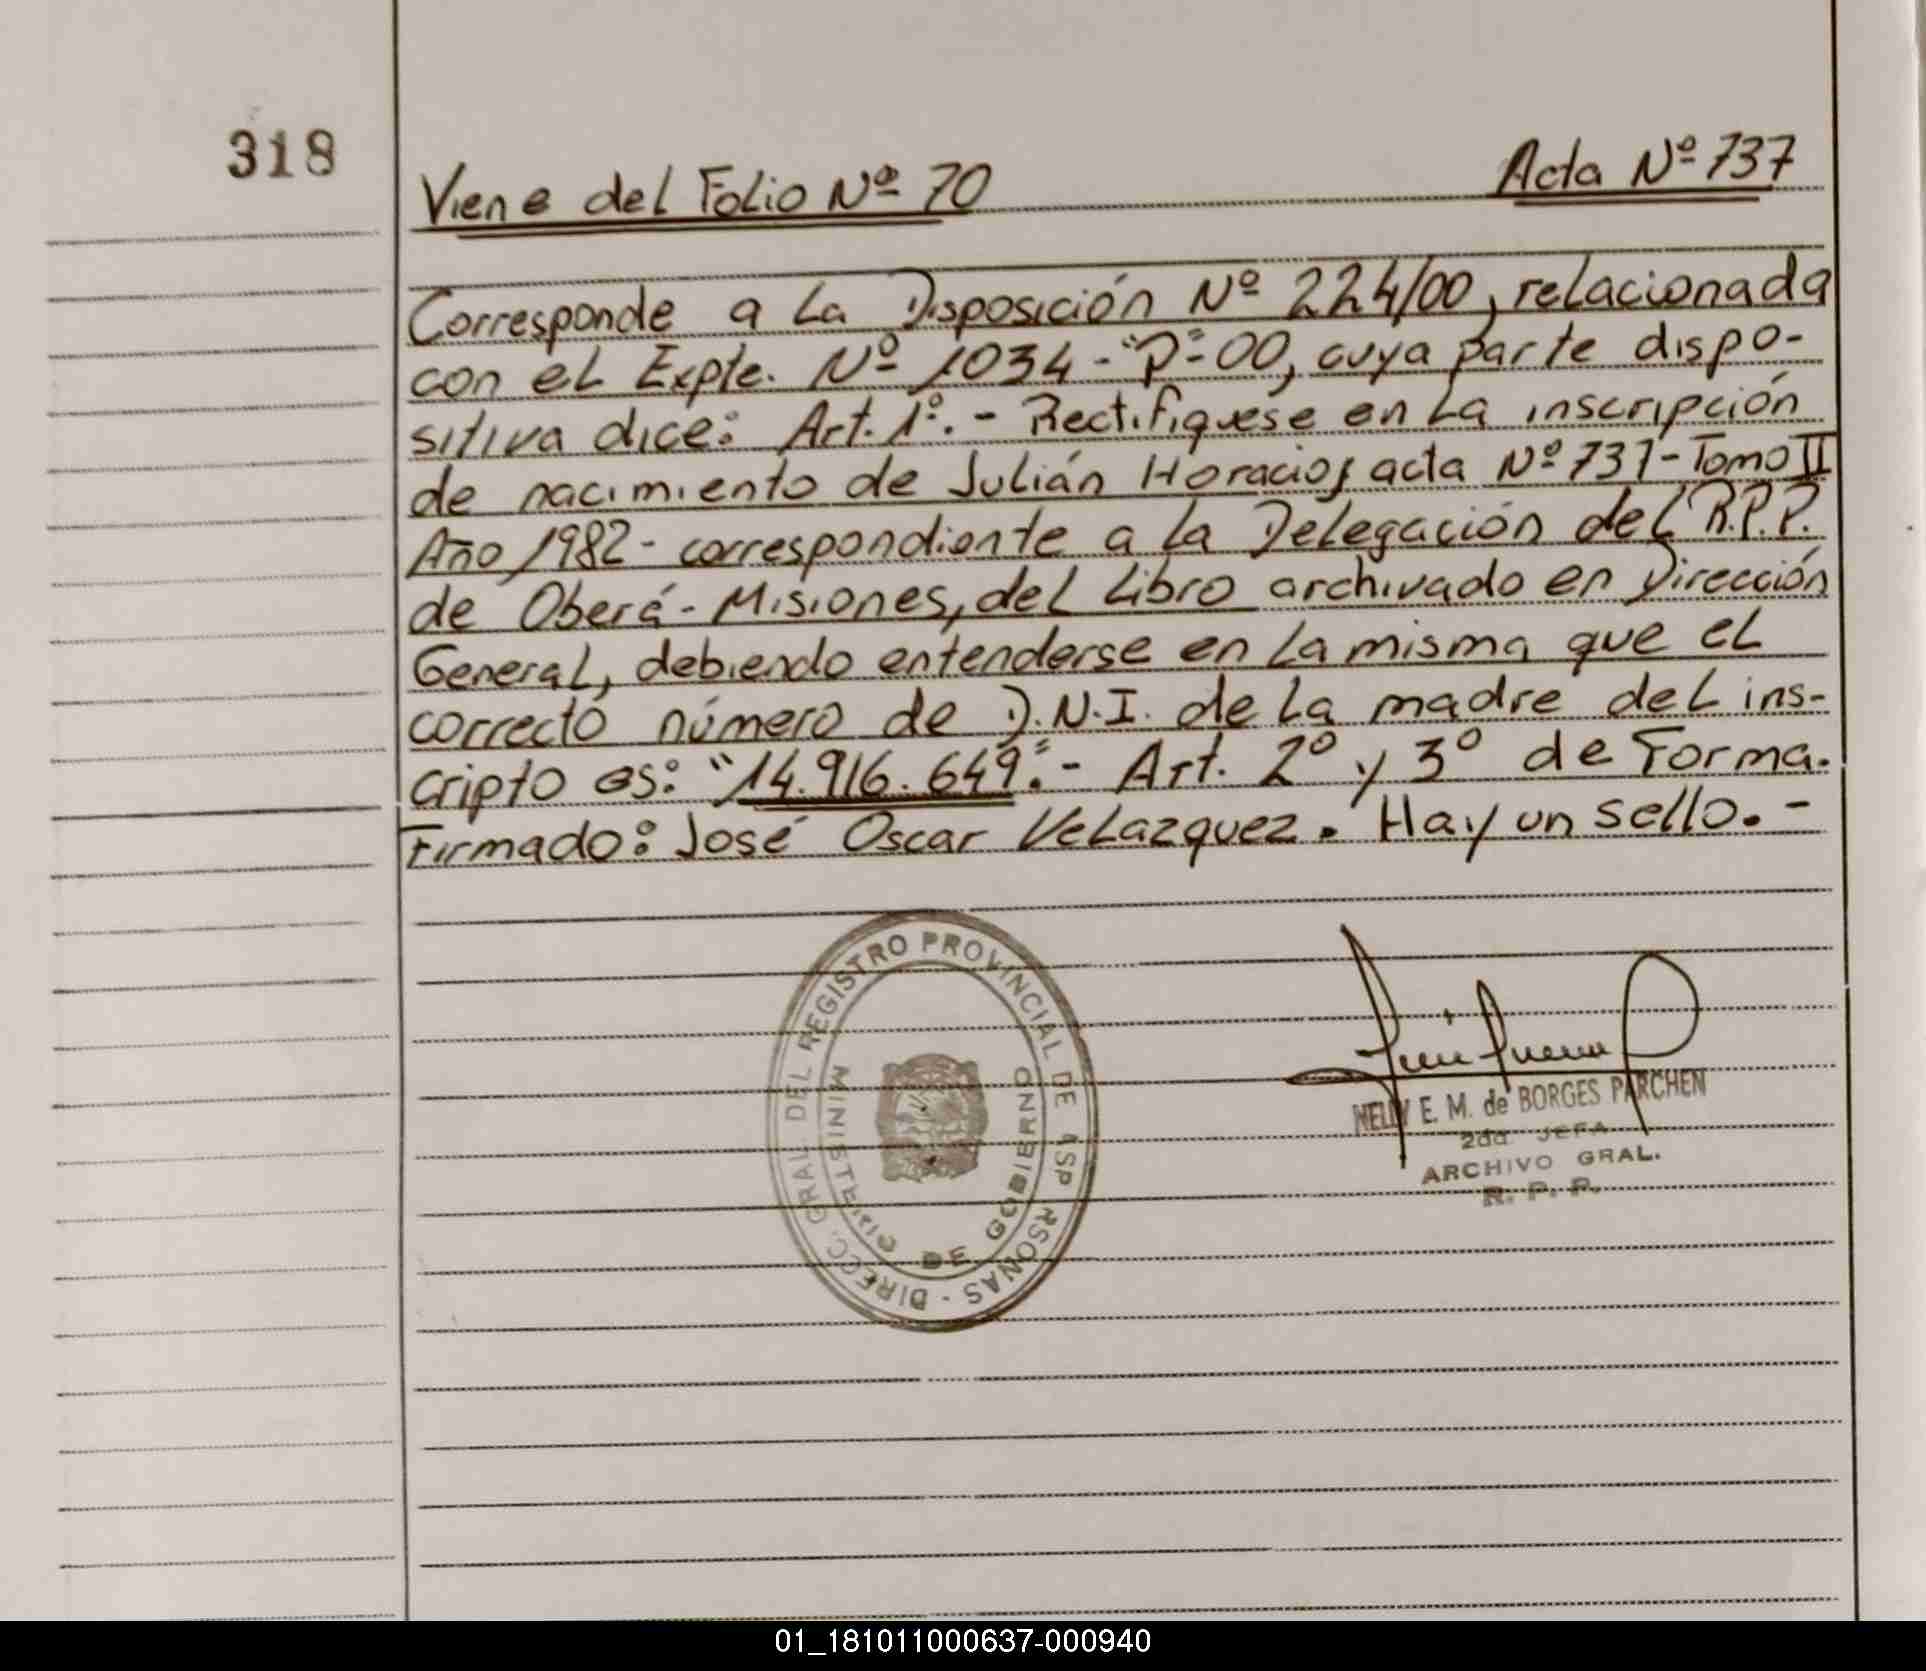 318
Viene del Folio Nº 70
Acta Nº 737
Corresponde a la Disposición Nº 224/00, relacionada
con el Expte. Nº 1034-"P"-00, cuya parte dispo-
sitiva dice: Art. 1º.- Rectifíquese en la inscripción
de nacimiento de Julián Horacio, acta Nº 737-Tomo II
Año 1982- correspondiente a la Delegación del R.P.P.
de Oberá-Misiones, del Libro archivado en Dirección
General, debiendo entenderse en la misma que el
correcto número de D.N.I. de la madre del ins-
cripto es: "14.916.649".- Art. 2º y 3º de Forma.
Firmado: José Oscar Velazquez. Hay un sello.-
DIREC. GRAL. DEL REGISTRO PROVINCIAL DE LAS PERSONAS -
MINISTERIO DE GOBIERNO
NELLY E. M. de BORGES PARCHEN
2da. JEFA
ARCHIVO GRAL.
R. P. P.
01_181011000637-000940